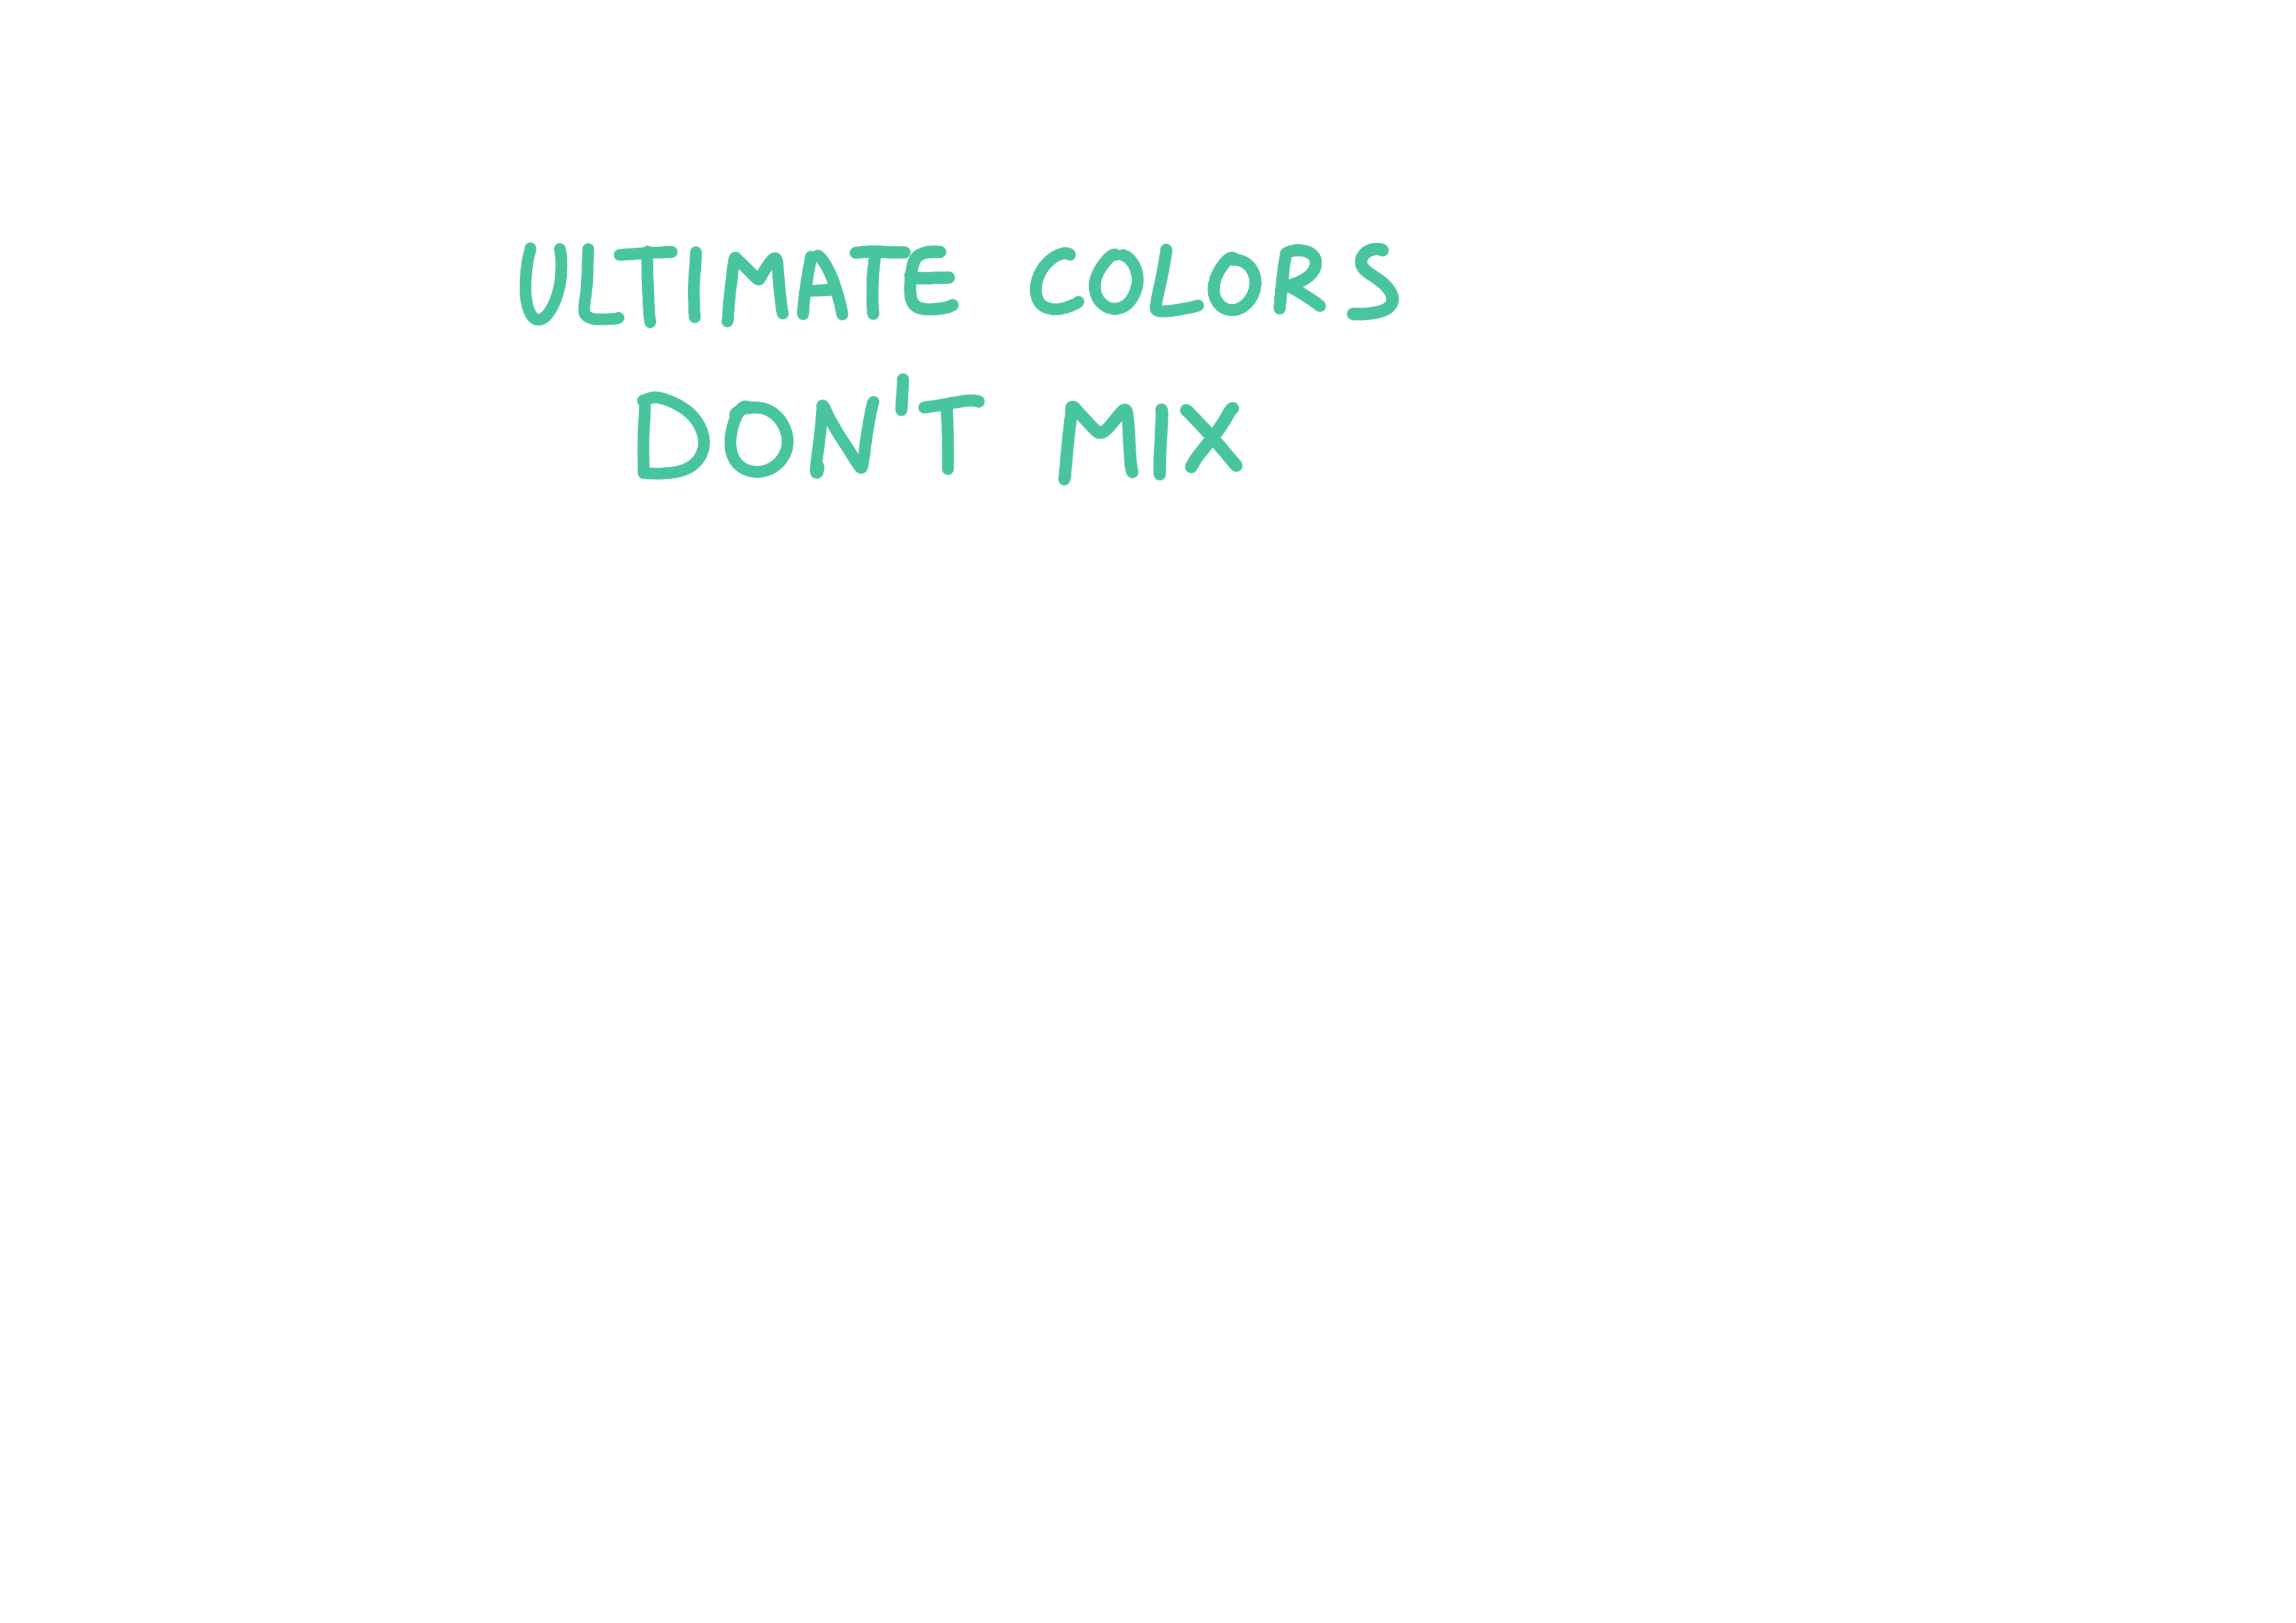 ULTIMATE COLORS
DON'T MIX